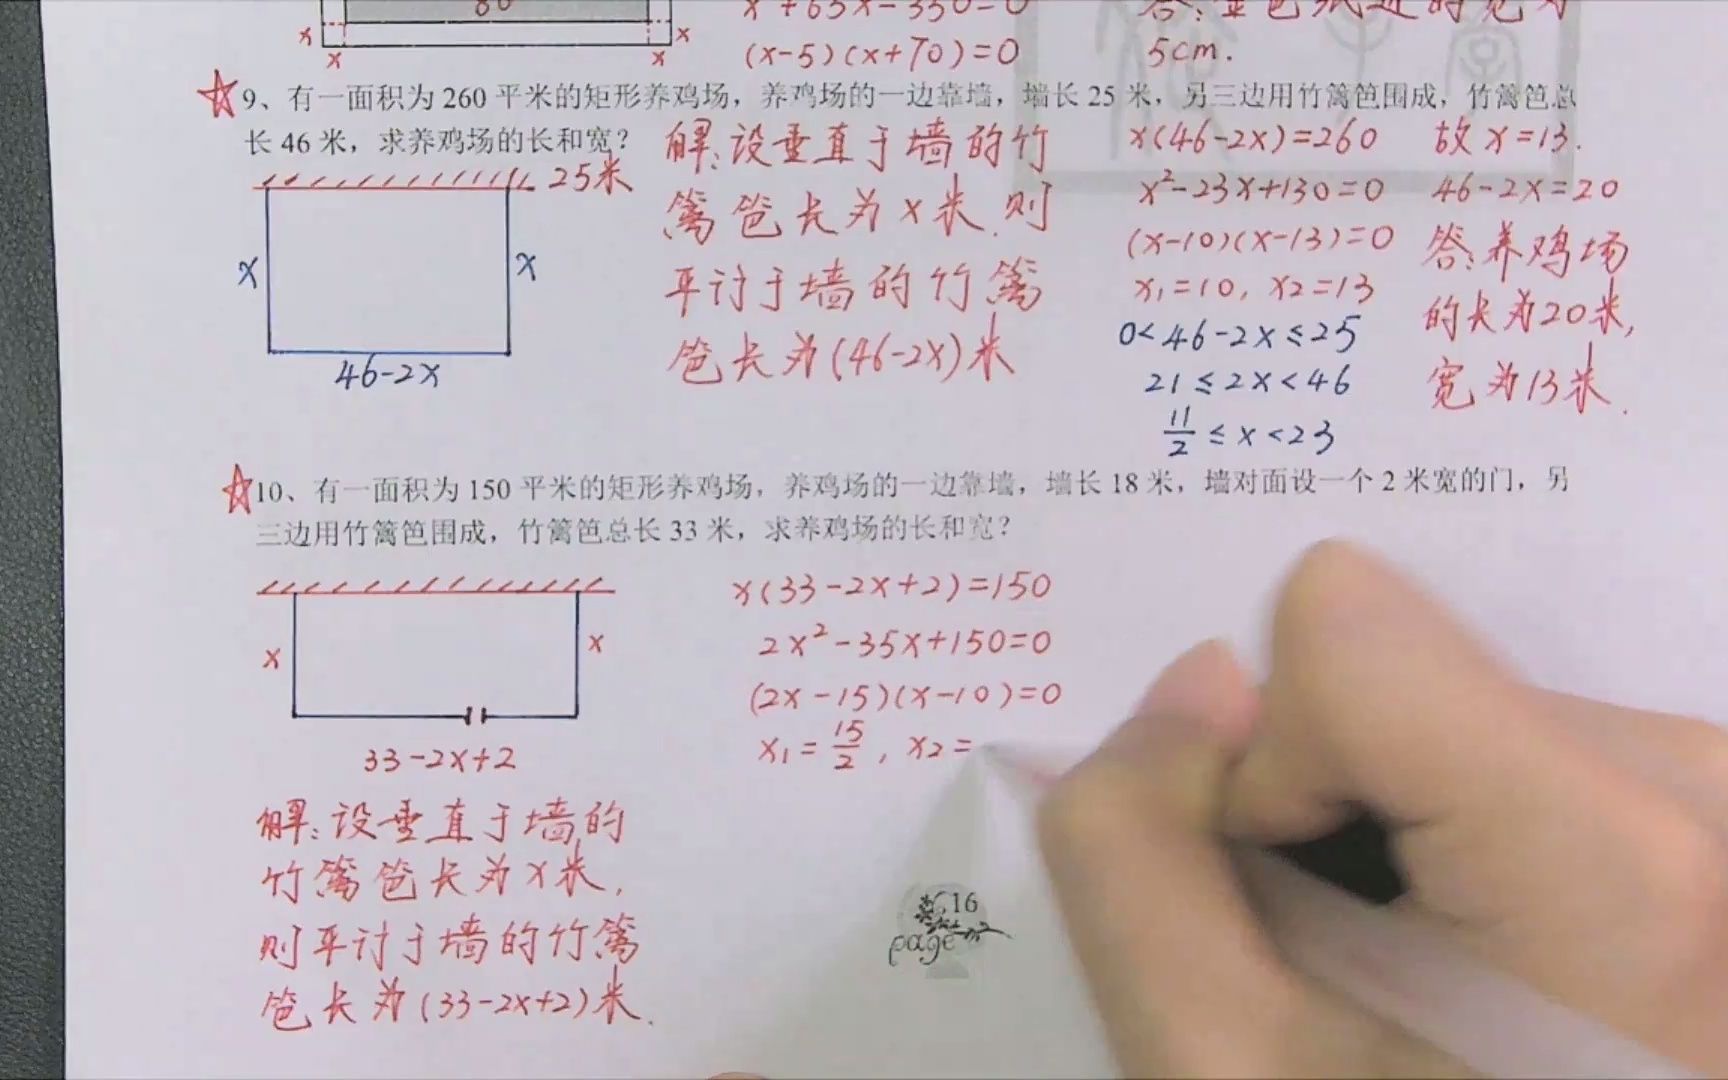 80
x x
x x
x²+65x-350=0
(x-5)(x+70)=0
5cm.
9、有一面积为 260 平米的矩形养鸡场，养鸡场的一边靠墙，墙长 25 米，另三边用竹篱笆围成，竹篱笆总
长 46 米，求养鸡场的长和宽？
25米
x
x
46-2x
解:设垂直于墙的竹
篱笆长为x米.则
平讨于墙的竹篱
笆长为(46-2x)米
x(46-2x)=260
x²-23x+130=0
(x-10)(x-13)=0
x₁=10, x₂=13
0<46-2x≤25
21≤2x<46
11/2≤x<23
故x=13.
46-2x=20
答:养鸡场
的长为20米,
宽为13米.
10、有一面积为 150 平米的矩形养鸡场，养鸡场的一边靠墙，墙长 18 米，墙对面设一个 2 米宽的门，另
三边用竹篱笆围成，竹篱笆总长 33 米，求养鸡场的长和宽？
x
x
33-2x+2
解:设垂直于墙的
竹篱笆长为x米,
则平讨于墙的竹篱
笆长为(33-2x+2)米.
x(33-2x+2)=150
2x²-35x+150=0
(2x-15)(x-10)=0
x₁=15/2, x₂=
16
page